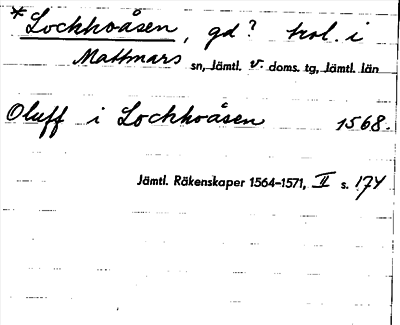 *Lockhoåsen, gd? trol. i
Mattmars sn, Jämtl. v. doms. tg, Jämtl. län
Oluff i Lockhoåsen 1568.
Jämtl. Räkenskaper 1564-1571, II s. 174